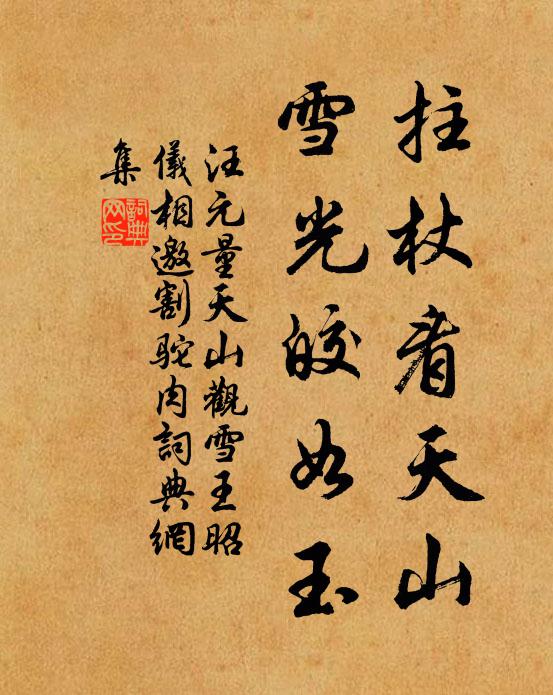 拄杖看天山
雪光皎如玉
汪元量天山觀雪王昭
儀相邀割駝肉詞典網
集
詞典
网印